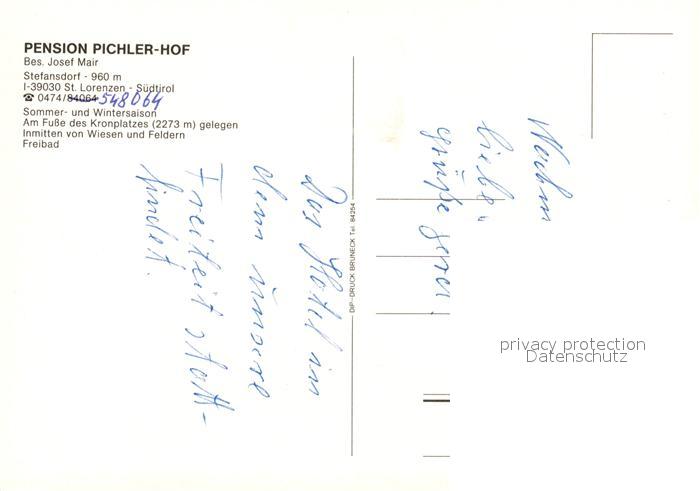 PENSION PICHLER-HOF
Bes. Josef Mair
Stefansdorf - 960 m
I-39030 St. Lorenzen - Südtirol
☎ 0474/84064 548064
Sommer- und Wintersaison
Am Fuße des Kronplatzes (2273 m) gelegen
Inmitten von Wiesen und Feldern
Freibad
Das Hotel in
dem unsere
Freizeit statt-
findet.
DIP-DRUCK BRUNECK Tel. 84254
liebe
grüße
privacy protection
Datenschutz